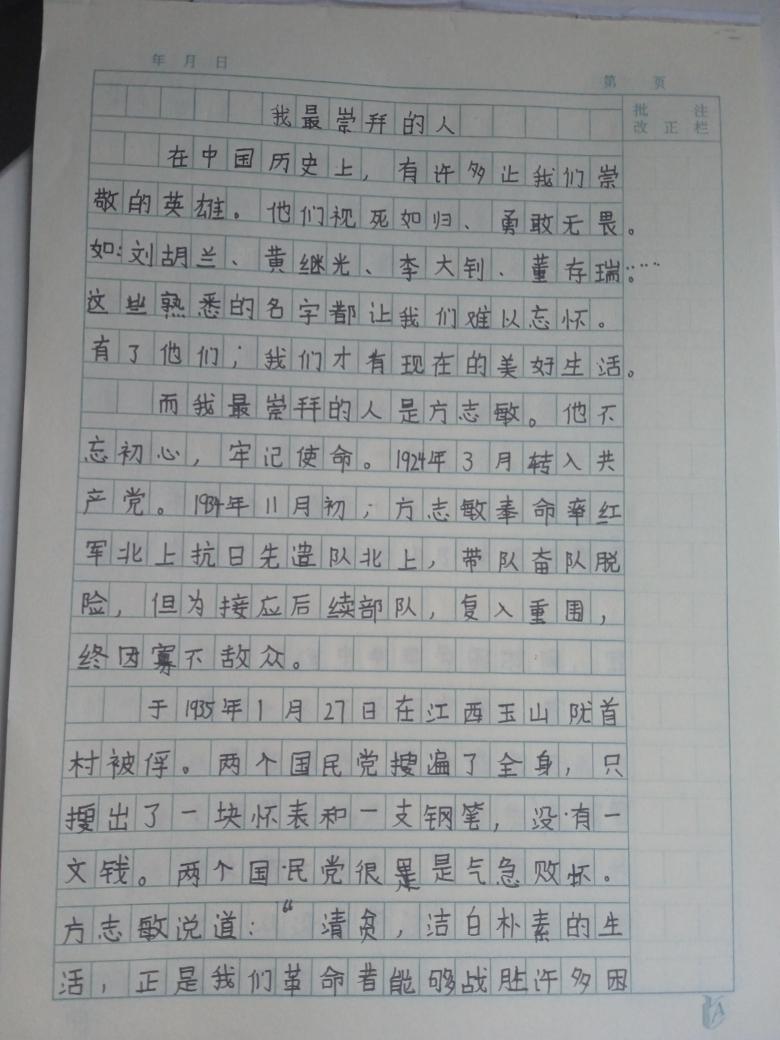 年 月 日
第 页
批 注
改 正 栏
我最崇拜的人
在中国历史上，有许多让我们崇
敬的英雄。他们视死如归、勇敢无畏。
如：刘胡兰、黄继光、李大钊、董存瑞……
这些熟悉的名字都让我们难以忘怀。
有了他们；我们才有现在的美好生活。
而我最崇拜的人是方志敏。他不
忘初心，牢记使命。1924年3月转入共
产党。1934年11月初；方志敏奉命率红
军北上抗日先遣队北上，带队奋队脱
险，但为接应后续部队，复入重围，
终因寡不敌众。
于1935年1月27日在江西玉山陇首
村被俘。两个国民党搜遍了全身，只
搜出了一块怀表和一支钢笔，没有一
文钱。两个国民党很是气急败怀。
方志敏说道：“清贫，洁白朴素的生
活，正是我们革命者能够战胜许多困